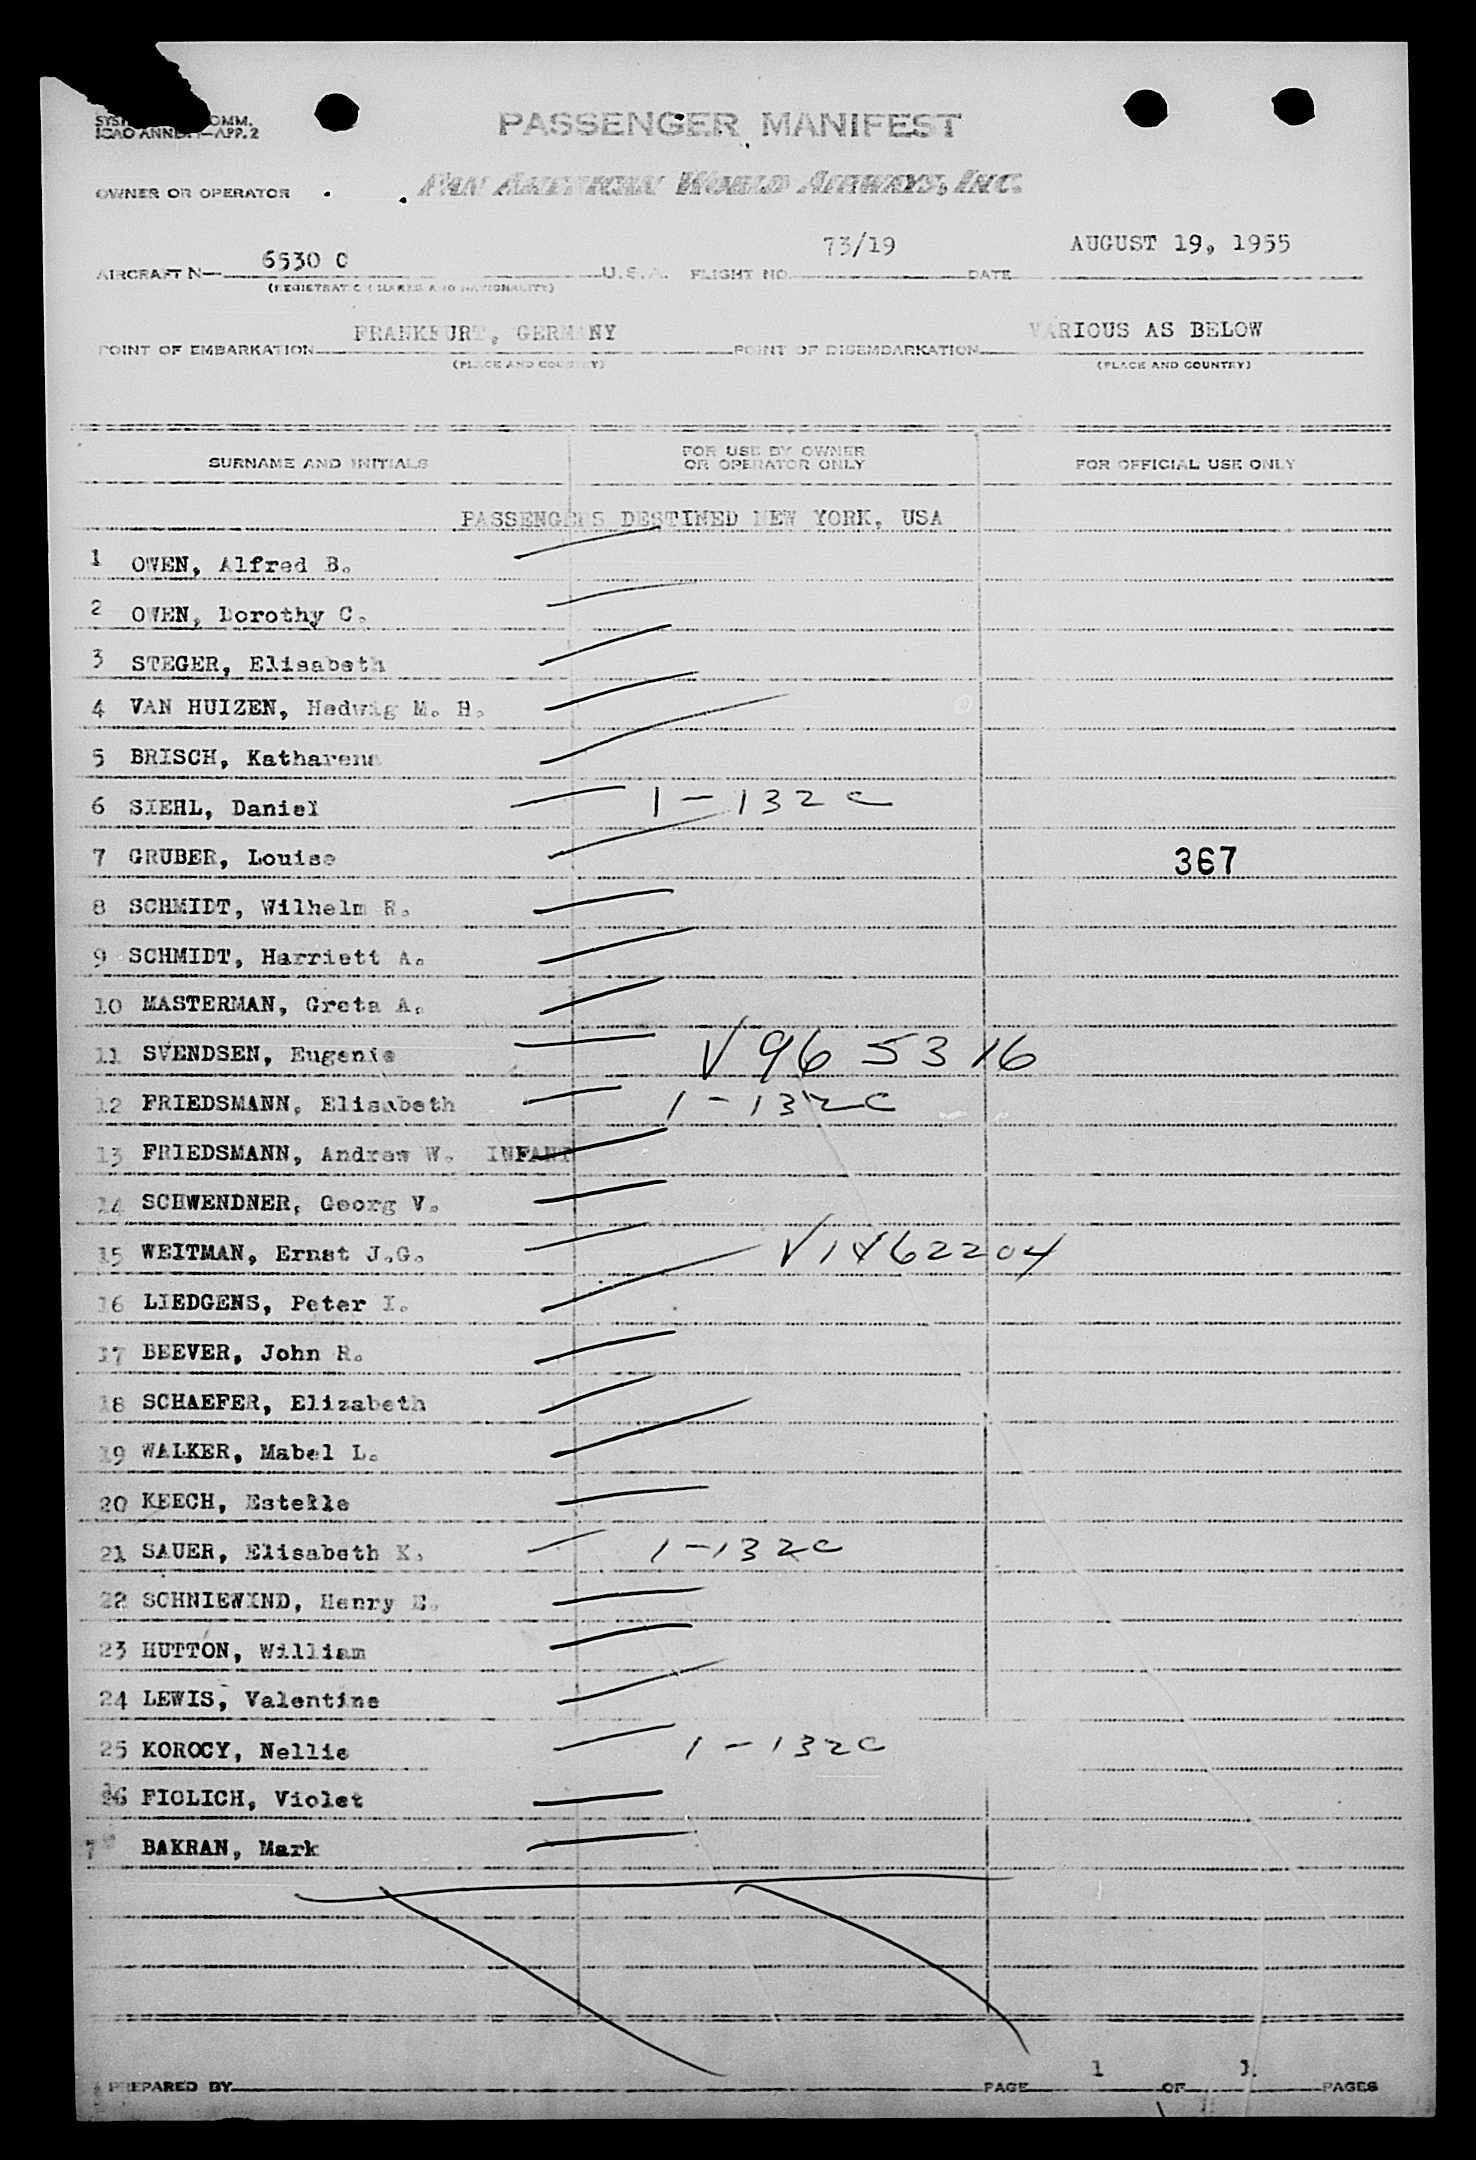 OMM.
ICAO ANNEX —APP. 2
PASSENGER MANIFEST
OWNER OR OPERATOR PAN AMERICAN WORLD AIRWAYS, INC.
73/19 AUGUST 19, 1955
6530 C
AIRCRAFT N— U.S.A. FLIGHT NO. DATE
(REGISTRATION MARKS AND NATIONALITY)
FRANKFURT, GERMANY VARIOUS AS BELOW
POINT OF EMBARKATION POINT OF DISEMBARKATION
(PLACE AND COUNTRY) (PLACE AND COUNTRY)
SURNAME AND INITIALS FOR USE BY OWNER OR OPERATOR ONLY FOR OFFICIAL USE ONLY
PASSENGERS DESTINED NEW YORK, USA
1 OWEN, Alfred B.
2 OWEN, Dorothy C.
3 STEGER, Elisabeth
4 VAN HUIZEN, Hedwig M. H.
5 BRISCH, Katharena
6 SIEHL, Daniel 1-132c
7 GRUBER, Louise 367
8 SCHMIDT, Wilhelm R.
9 SCHMIDT, Harriett A.
10 MASTERMAN, Greta A.
11 SVENDSEN, Eugenie V965316
12 FRIEDSMANN, Elisabeth 1-132c
13 FRIEDSMANN, Andrew W. INFANT
14 SCHWENDNER, Georg V.
15 WEITMAN, Ernst J.G.
16 LIEDGENS, Peter I.
17 BEEVER, John R.
18 SCHAEFER, Elizabeth
19 WALKER, Mabel L.
20 KEECH, Estelle
21 SAUER, Elisabeth K. 1-132c
22 SCHNIEWIND, Henry E.
23 HUTTON, William
24 LEWIS, Valentine
25 KOROCY, Nellie 1-132c
26 FIOLICH, Violet
7 BAKRAN, Mark
PREPARED BY PAGE 1 OF 1 PAGES